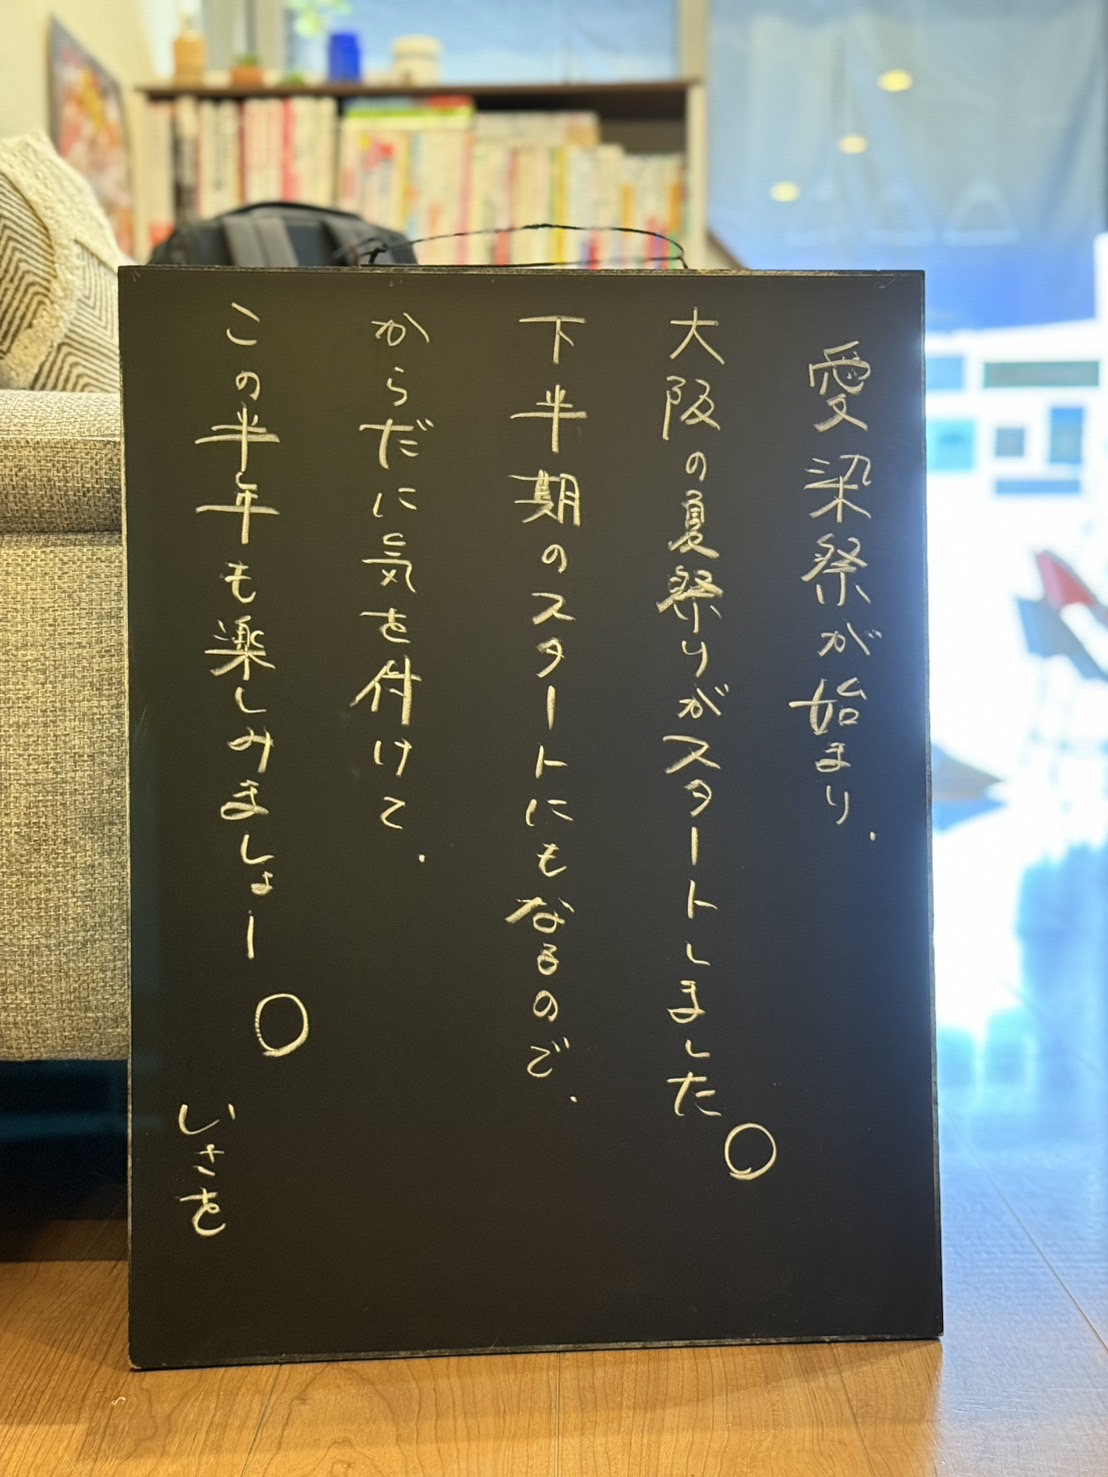 愛染祭が始まり、
大阪の夏祭りがスタートしました。
下半期のスタートにもなるので、
からだに気を付けて、
この半年も楽しみましょー。
いさを